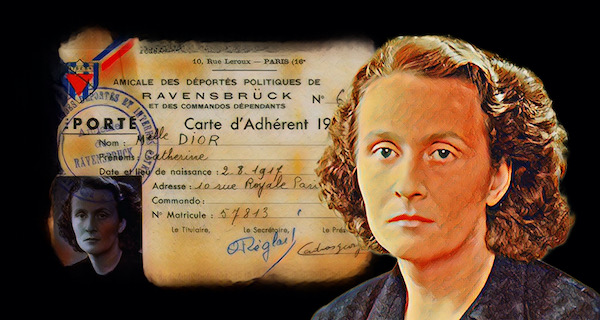 10, Rue Leroux — PARIS (16e
AMICALE DES DÉPORTÉS POLITIQUES DE
RAVENSBRÜCK
ET DES COMMANDOS DÉPENDANTS
N°
ÉPORTÉ
Carte d'Adhérent 19
Nom : Melle DIOR
Prénoms : Catherine
Date et lieu de naissance : 2.8.1917
Adresse : 10 rue Royale Paris
Commando :
N° Matricule : 57813
Le Titulaire, Le Secrétaire, Le Prés
DES DÉPORTÉS ET INTERNÉS
RAVENSBRUCK